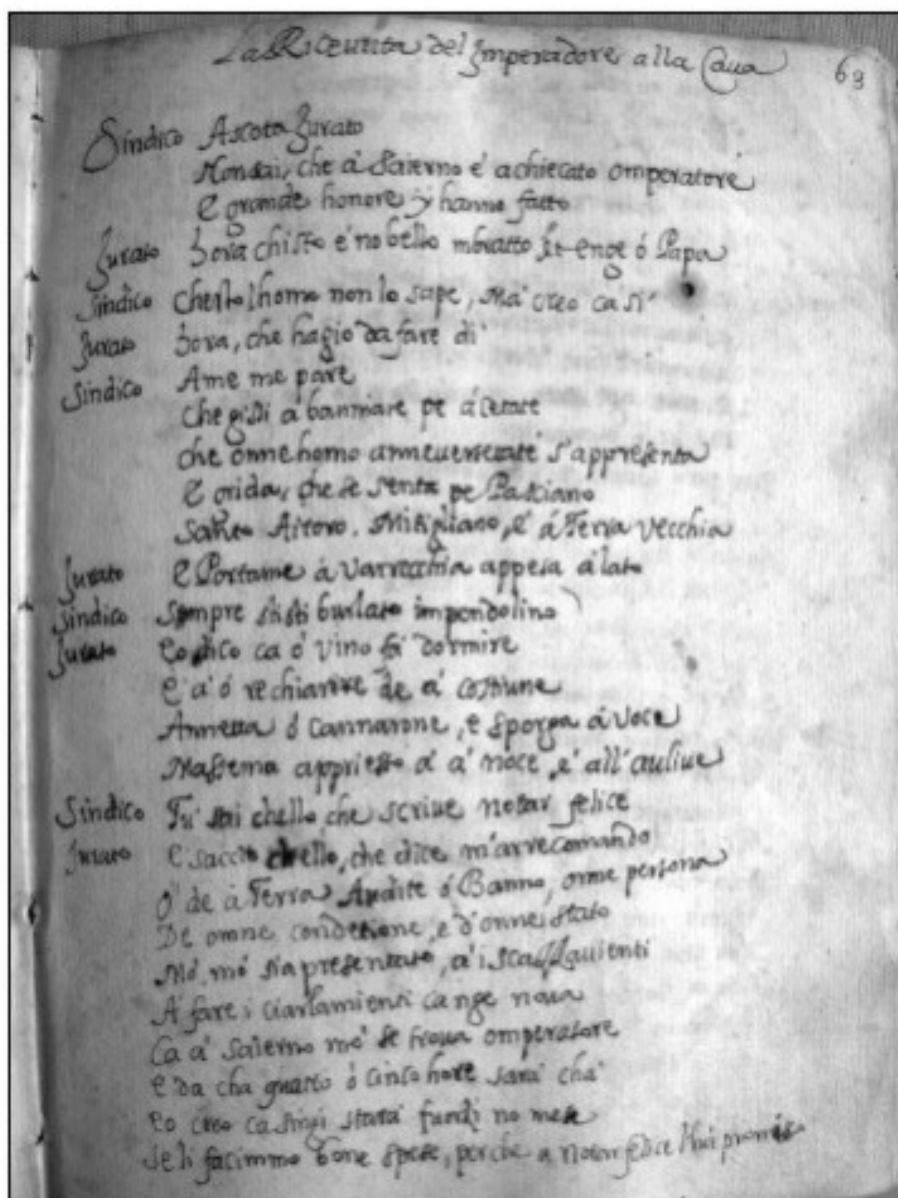 La Riceuuta del Imperadore alla Caua 63
Sindico Ascota Jurato
Non sai, che à Salerno è achiecato omperatore
E grande honore y hanno fatto
Jurato hora chisto è no bello mbratto, enge ó Papa
Sindico Chesto l'homo non lo sape, Ma creo ca si
Jurato hora, che hagio da fare di
Sindico A me me pare
Che gissi à banniare pe à Cetate
che onne homo s'appresenta
E grida, che se senta pe Passiano
Santo Aitoro, Mitigliano, e á Terra Vecchia
Jurato E Portame à Varrecchia appesa á lato
Sindico sempre sisti burlato impondolino
Jurato Eo dico ca ó vino fà dormire
E à ó rechiarire de a' commune
Annetta ó Cannarone, e sporga á Voce
Massema appriesso à a' noce, e all'auliue
Sindico Tu sai chello, che scriue notar felice
Jurato E saccio chello, che dice m'arrecomando
O' de à Terra Audite ó Banno, onne persona
De omne condetione, e d'onne stato
Mò, mò sia presentato, à i
A fare i ciarlamienti ca nge noua
Ca à Salerno mò se troua omperatore
E da cha quatto ò cinco hore sarà chà
Eo creo ca starà fuorzi no mese
Se li facimmo bone spese, perche a notar felice promiso